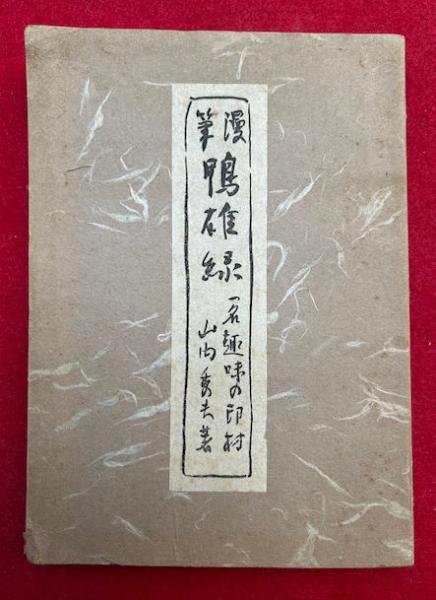 漫筆
鴨雄緑
一名趣味の印材
山内秀夫著